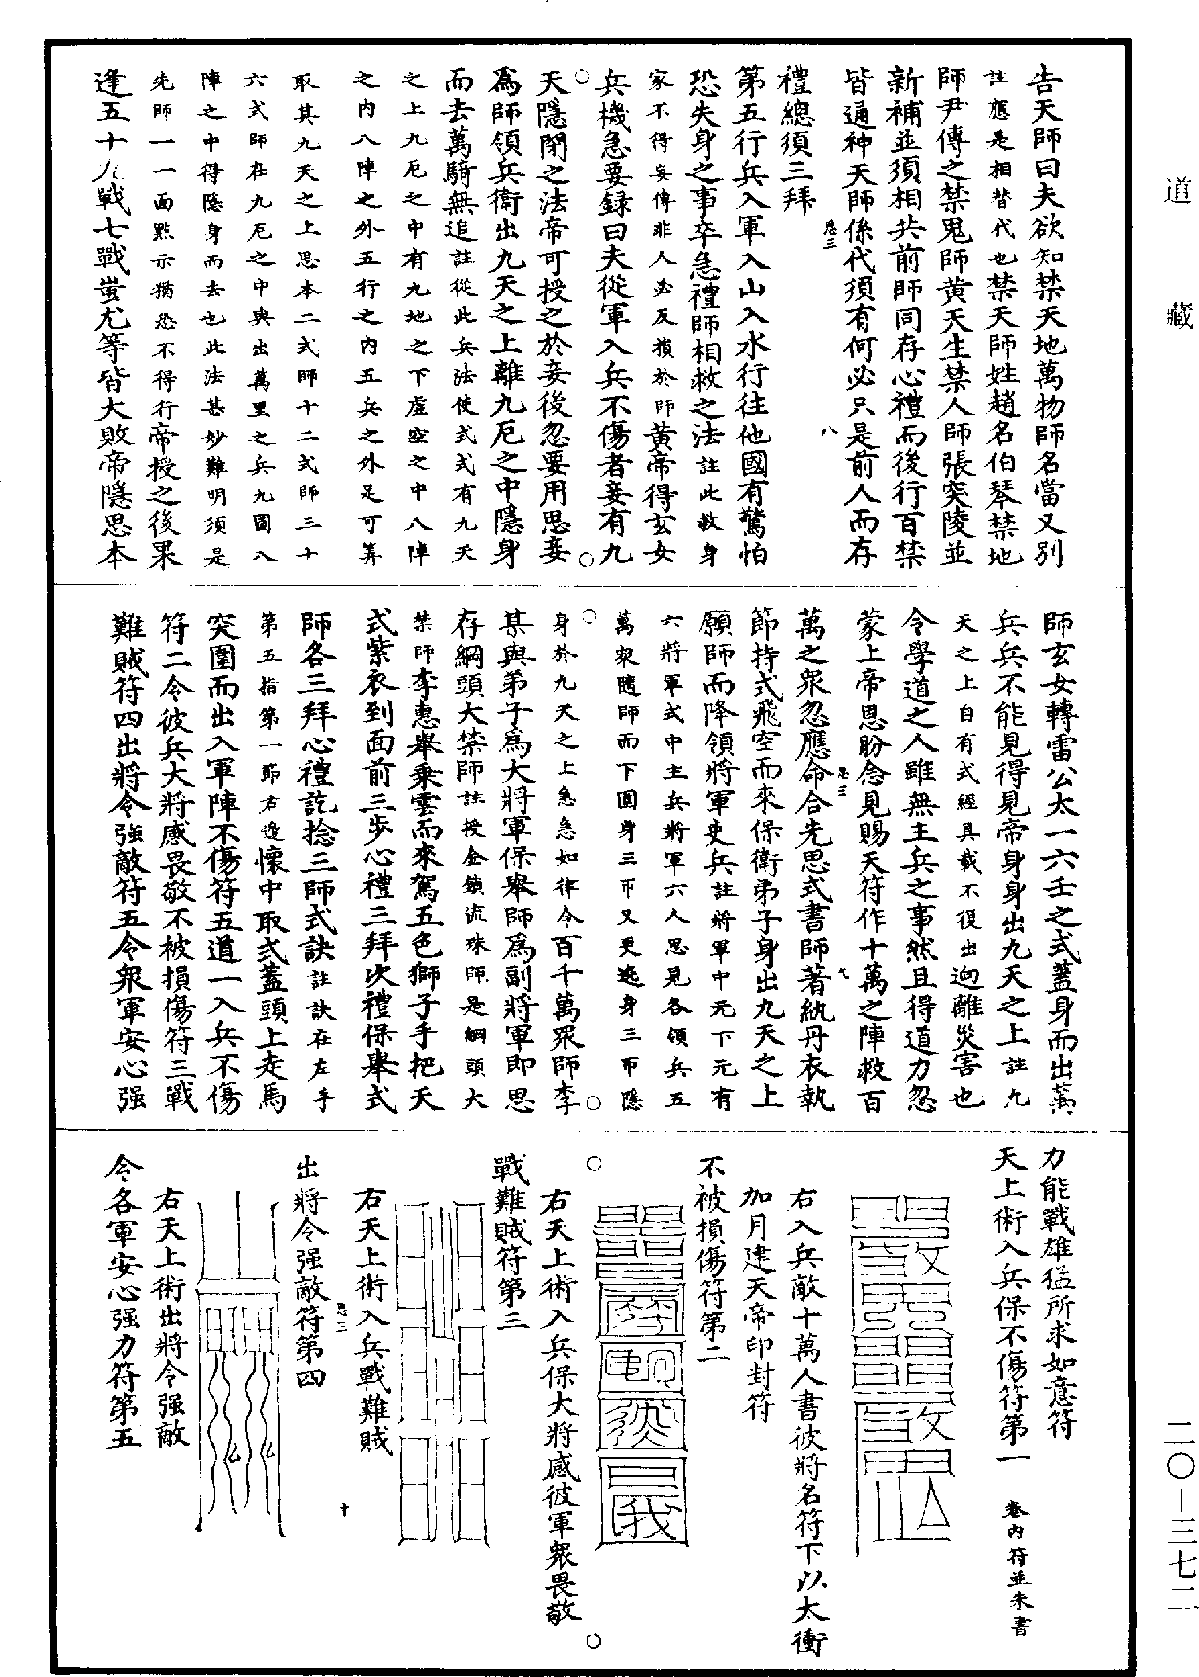 道藏
二〇－三七二
告天師曰夫欲知禁天地萬物師名當又別
註應是相替代也禁天師姓趙名伯琴禁地
師尹傳之禁鬼師黄天生禁人師張突陵並
新補並須相共前師同存心禮而後行百禁
皆通神天師係代須有何必只是前人而存
忌三 八
禮總須三拜
第五行兵入軍入山入水行往他國有驚怕
恐失身之事卒急禮師相救之法註此救身
家不得妄傳非人必反損於師黄帝得玄女
兵機急要録曰夫從軍入兵不傷者妾有九
天隱閉之法帝可授之於妾後忽要用思妾
爲師領兵衛出九天之上離九厄之中隱身
而去萬騎無追註從此兵法使式式有九天
之上九厄之中有九地之下虚空之中八陣
之内八陣之外五行之内五兵之外是可筭
取其九天之上思本二式師十二式師三十
六式師在九厄之中與出萬里之兵九圍八
陣之中得隱身而去也此法甚妙難明須是
先師一一面點示猶恐不得行帝授之後果
逢五十九戰七戰蚩尤等皆大敗帝隱思本
師玄女轉雷公太一六壬之式蓋身而出萬
兵兵不能見得見帝身身出九天之上註九
天之上自有式經具載不復出迴離災害也
令學道之人雖無主兵之事然且得道力忽
蒙上帝思盼念見賜天符作十萬之陣救百
忌三 九
萬之衆忽應命合先思式書師著紈丹衣執
節持式飛空而來保衛弟子身出九天之上
願師而降領將軍吏兵註將軍中元下元有
六將軍式中主兵將軍六人思見各領兵五
萬衆隨師而下圓身三帀又更遶身三帀隱
身於九天之上急急如律令百千萬衆師李
某與弟子爲大將軍保舉師爲副將軍即思
存綱頭大禁師註授金鎖流珠師是綱頭大
禁師李惠舉乘雲而來駕五色獅子手把天
式紫衣到面前三步心禮三拜次禮保舉式
師各三拜心禮訖捻三師式訣註訣在左手
第五指第一節右邊懷中取式蓋頭上走馬
突圍而出入軍陣不傷符五道一入兵不傷
符二令彼兵大將感畏敬不被損傷符三戰
難賊符四出將令強敵符五令衆軍安心强
力能戰雄猛所求如意符
天上術入兵保不傷符第一 卷内符並朱書
右入兵敵十萬人書彼將名符下以太衝
加月建天帝印封符
不被損傷符第二
右天上術入兵保大將感彼軍衆畏敬
戰難賊符第三
右天上術入兵戰難賊
忌三 十
出將令强敵符第四
右天上術出將令强敵
令各軍安心强力符第五